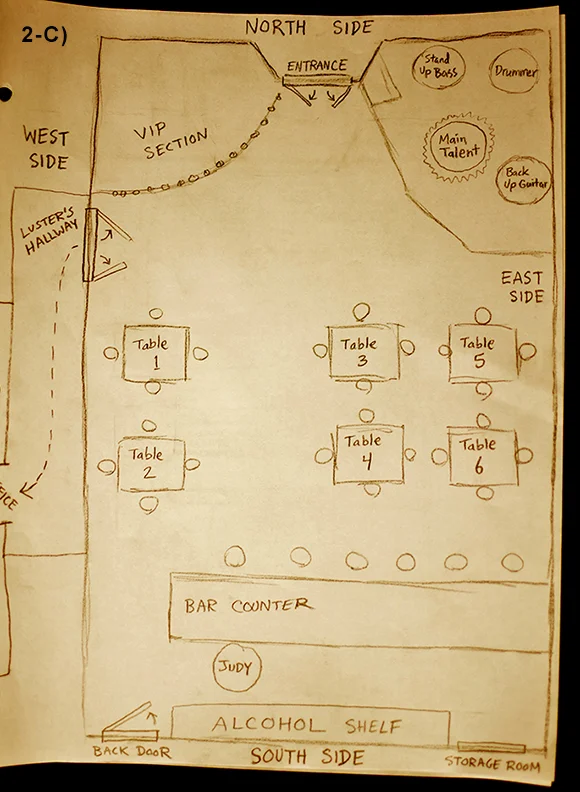 2-C)
NORTH SIDE
ENTRANCE
Stand
Up Bass
Drummer
VIP
SECTION
Main
Talent
Back
Up Guitar
WEST
SIDE
LUSTER'S
HALLWAY
EAST
SIDE
Table
1
Table
3
Table
5
Table
2
Table
4
Table
6
BAR COUNTER
JUDY
ALCOHOL SHELF
BACK DOOR
SOUTH SIDE
STORAGE ROOM